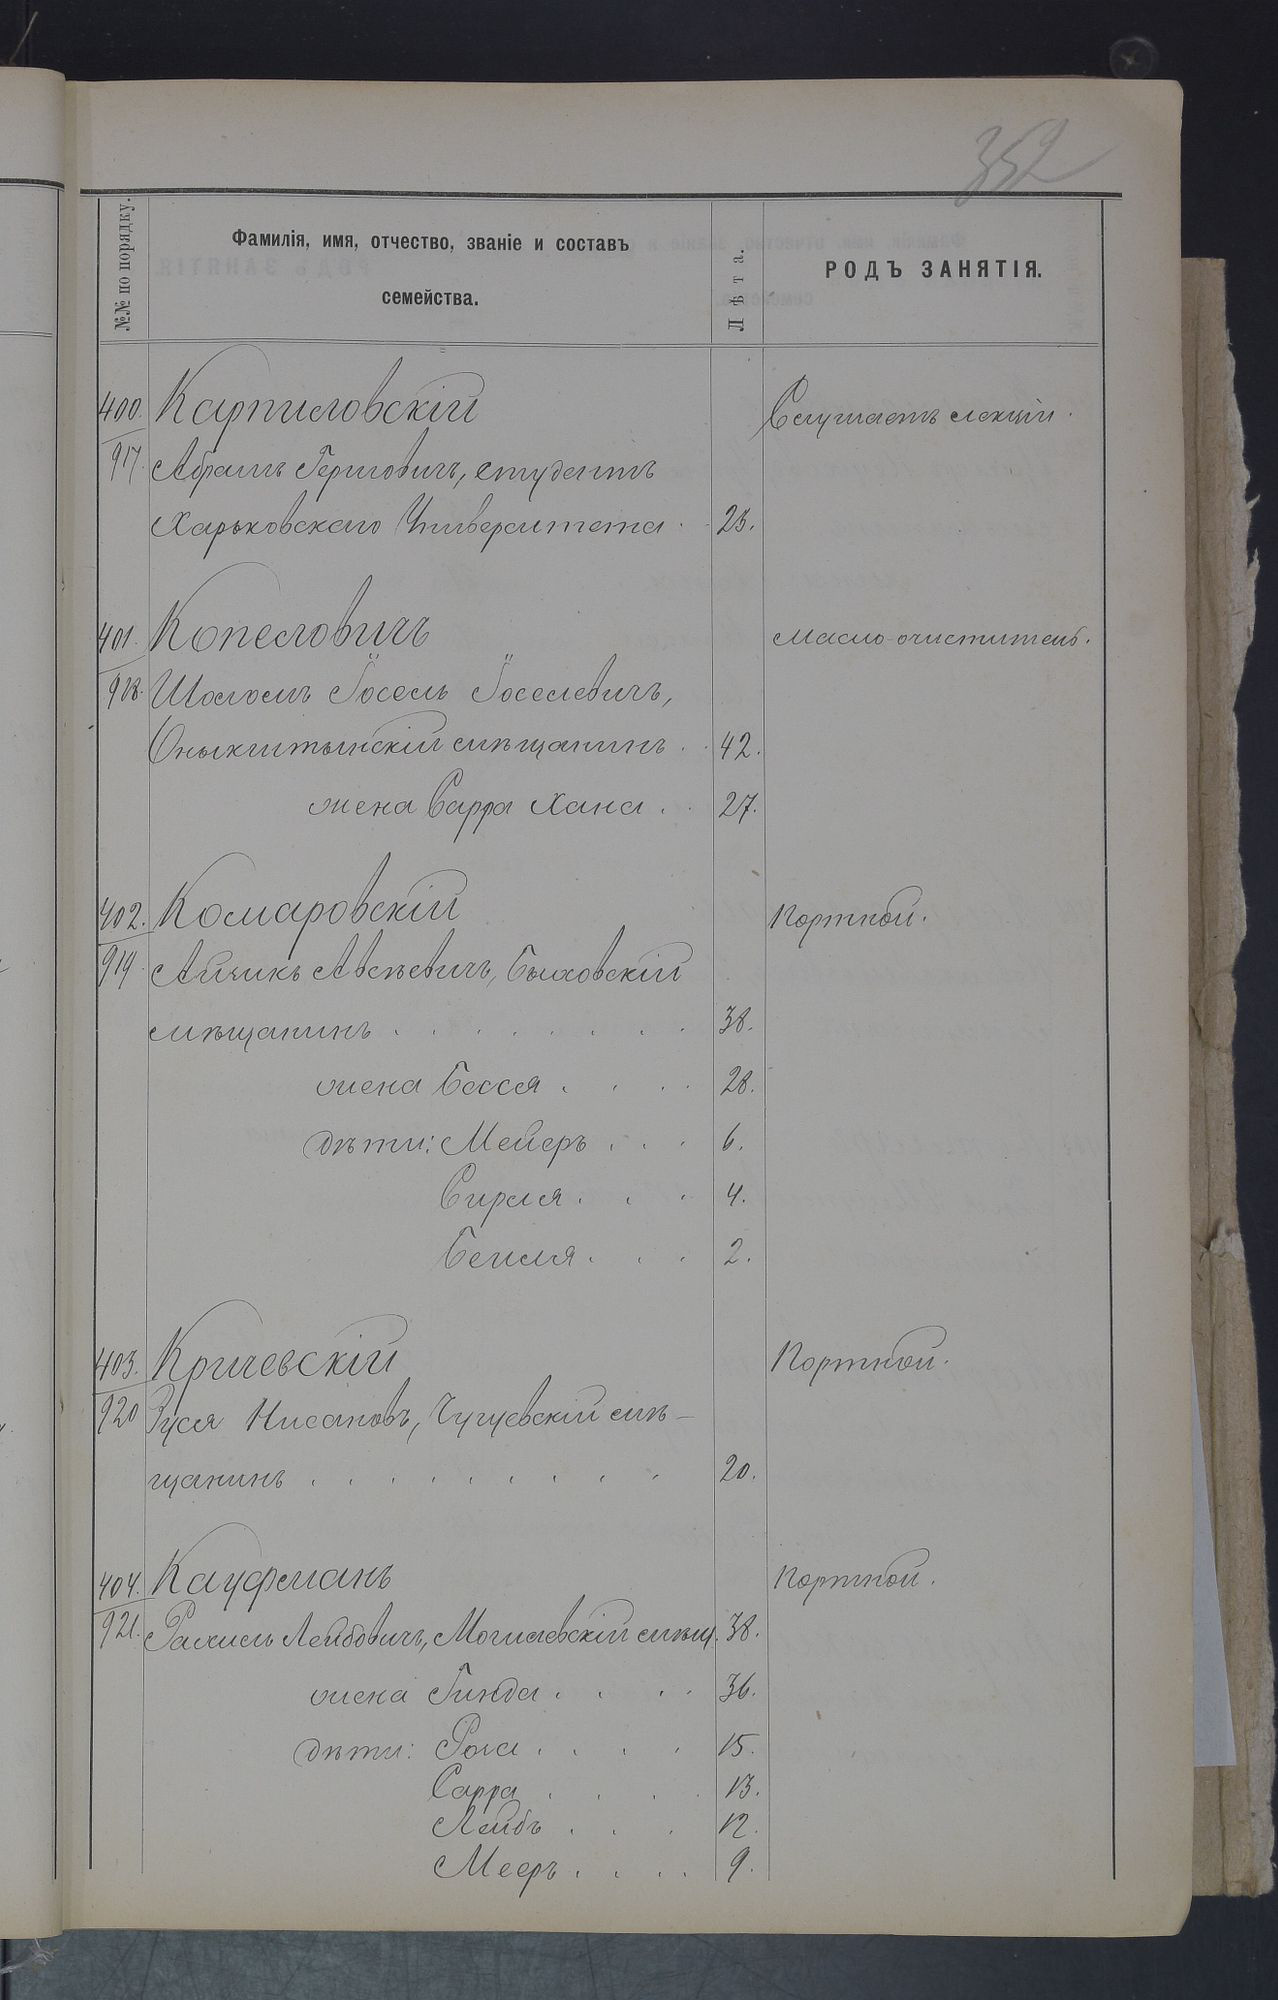 352
№№ по порядку.
Фамилія, имя, отчество, званіе и составъ
семейства.
Лѣта.
РОДЪ ЗАНЯТІЯ.
400. Карпиловскій Слушаетъ лекціи.
917. Абрамъ Гершовичъ, студентъ
Харьковскаго Университета . . 25.
401. Копеловичъ Масло-очиститель.
918. Шоломъ Іосель Іоселевичъ,
Оныкштынскій мѣщанинъ . . 42.
жена Сарра Хана . . 27.
402. Комаровскій Портной.
919. Айчикъ Авсѣевичъ, Быховскій
мѣщанинъ . . . . . . . . 38.
жена Бася . . . . 28.
дѣти: Мейеръ . . . 6.
Сирля . . . 4.
Бейля . . . 2.
403. Кричевскій Портной.
920 Зуся Нисановъ, Чугуевскій мѣ-
щанинъ . . . . . . . . 20.
404. Кауфманъ Портной.
921. Рахмиль Лейбовичъ, Могилевскій мѣщ. 38.
жена Гинда . . . . 36.
дѣти: Роха . . . . 15.
Сарра . . . . 13.
Лейбъ . . . 12.
Мееръ . . . . 9.